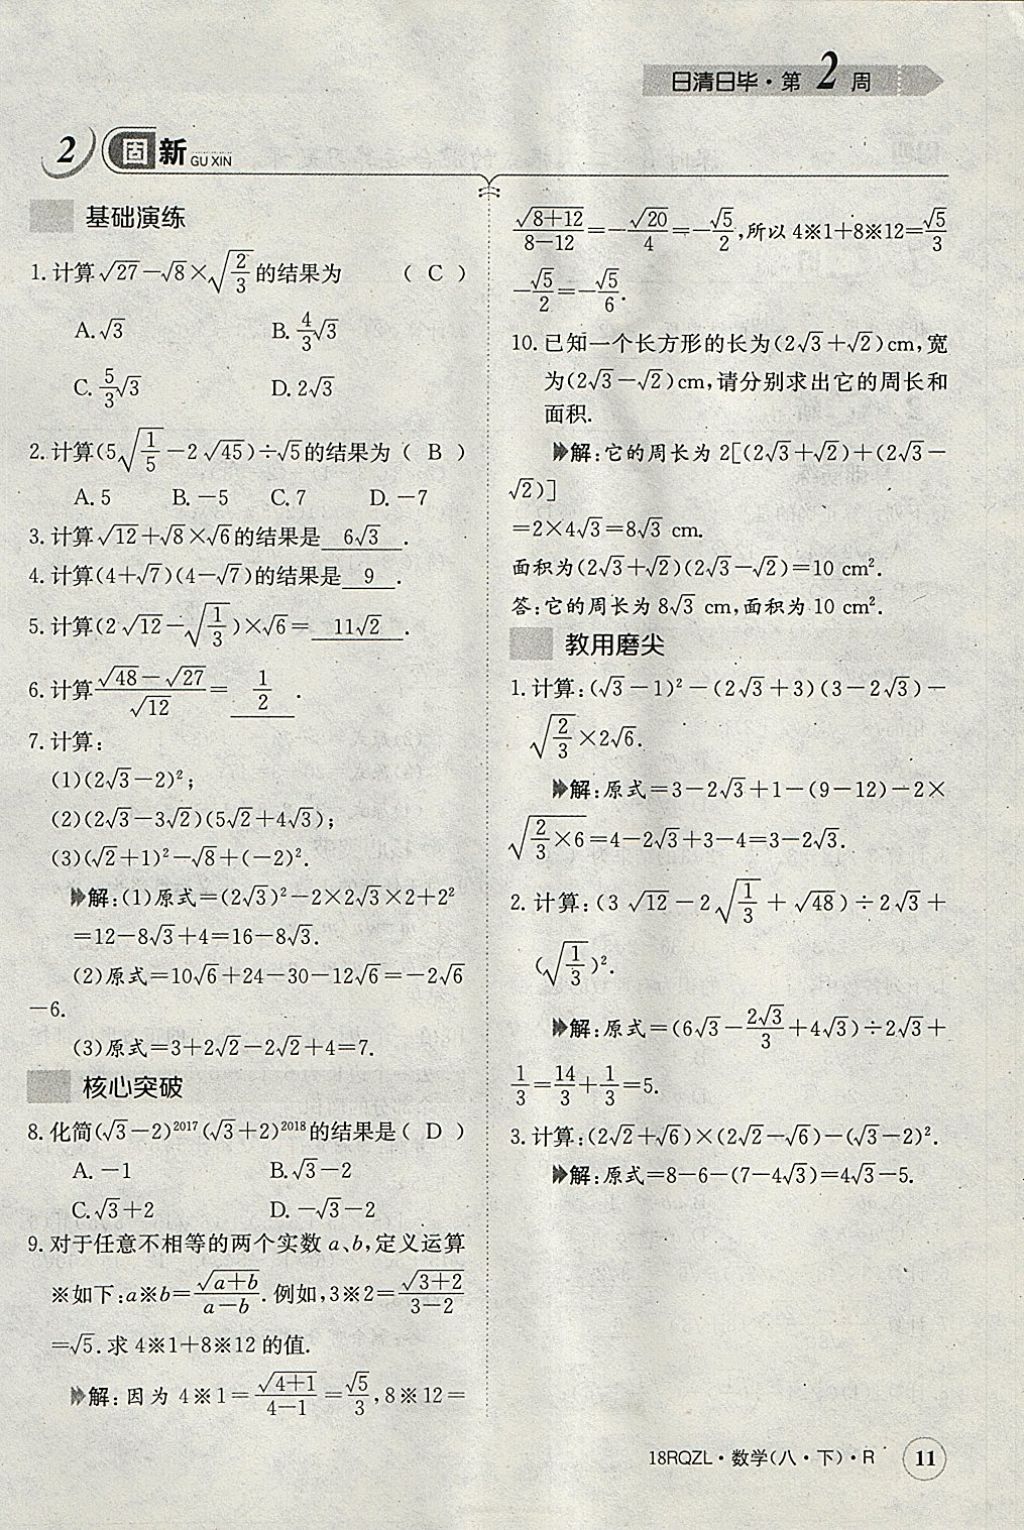 日清日毕·第2周
2 固新 GU XIN
基础演练
1.计算√27-√8×√(2/3)的结果为 ( C )
A.√3 B.(4/3)√3
C.(5/3)√3 D.2√3
2.计算(5√(1/5)-2√45)÷√5的结果为( B )
A.5 B.-5 C.7 D.-7
3.计算√12+√8×√6的结果是 6√3 .
4.计算(4+√7)(4-√7)的结果是 9 .
5.计算(2√12-√(1/3))×√6= 11√2 .
6.计算(√48-√27)/√12= 1/2 .
7.计算:
(1)(2√3-2)²;
(2)(2√3-3√2)(5√2+4√3);
(3)(√2+1)²-√8+(-2)².
解:(1)原式=(2√3)²-2×2√3×2+2²
=12-8√3+4=16-8√3.
(2)原式=10√6+24-30-12√6=-2√6
-6.
(3)原式=3+2√2-2√2+4=7.
核心突破
8.化简(√3-2)²⁰¹⁷(√3+2)²⁰¹⁸的结果是( D )
A.-1 B.√3-2
C.√3+2 D.-√3-2
9.对于任意不相等的两个实数a、b,定义运算
※如下:a※b=√(a+b)/(a-b).例如,3※2=√(3+2)/(3-2)
=√5.求4※1+8※12的值.
解:因为4※1=√(4+1)/(4-1)=√5/3,8※12=
√(8+12)/(8-12)=-√20/4=-√5/2,所以4※1+8※12=√5/3
-√5/2=-√5/6.
10.已知一个长方形的长为(2√3+√2)cm,宽
为(2√3-√2)cm,请分别求出它的周长和
面积.
解:它的周长为2[(2√3+√2)+(2√3-
√2)]
=2×4√3=8√3 cm.
面积为(2√3+√2)(2√3-√2)=10 cm².
答:它的周长为8√3 cm,面积为10 cm².
教用磨尖
1.计算:(√3-1)²-(2√3+3)(3-2√3)-
√(2/3)×2√6.
解:原式=3-2√3+1-(9-12)-2×
√(2/3×6)=4-2√3+3-4=3-2√3.
2.计算:(3√12-2√(1/3)+√48)÷2√3+
(√(1/3))².
解:原式=(6√3-2√3/3+4√3)÷2√3+
1/3=14/3+1/3=5.
3.计算:(2√2+√6)×(2√2-√6)-(√3-2)².
解:原式=8-6-(7-4√3)=4√3-5.
18RQZL·数学(八·下)·R 11